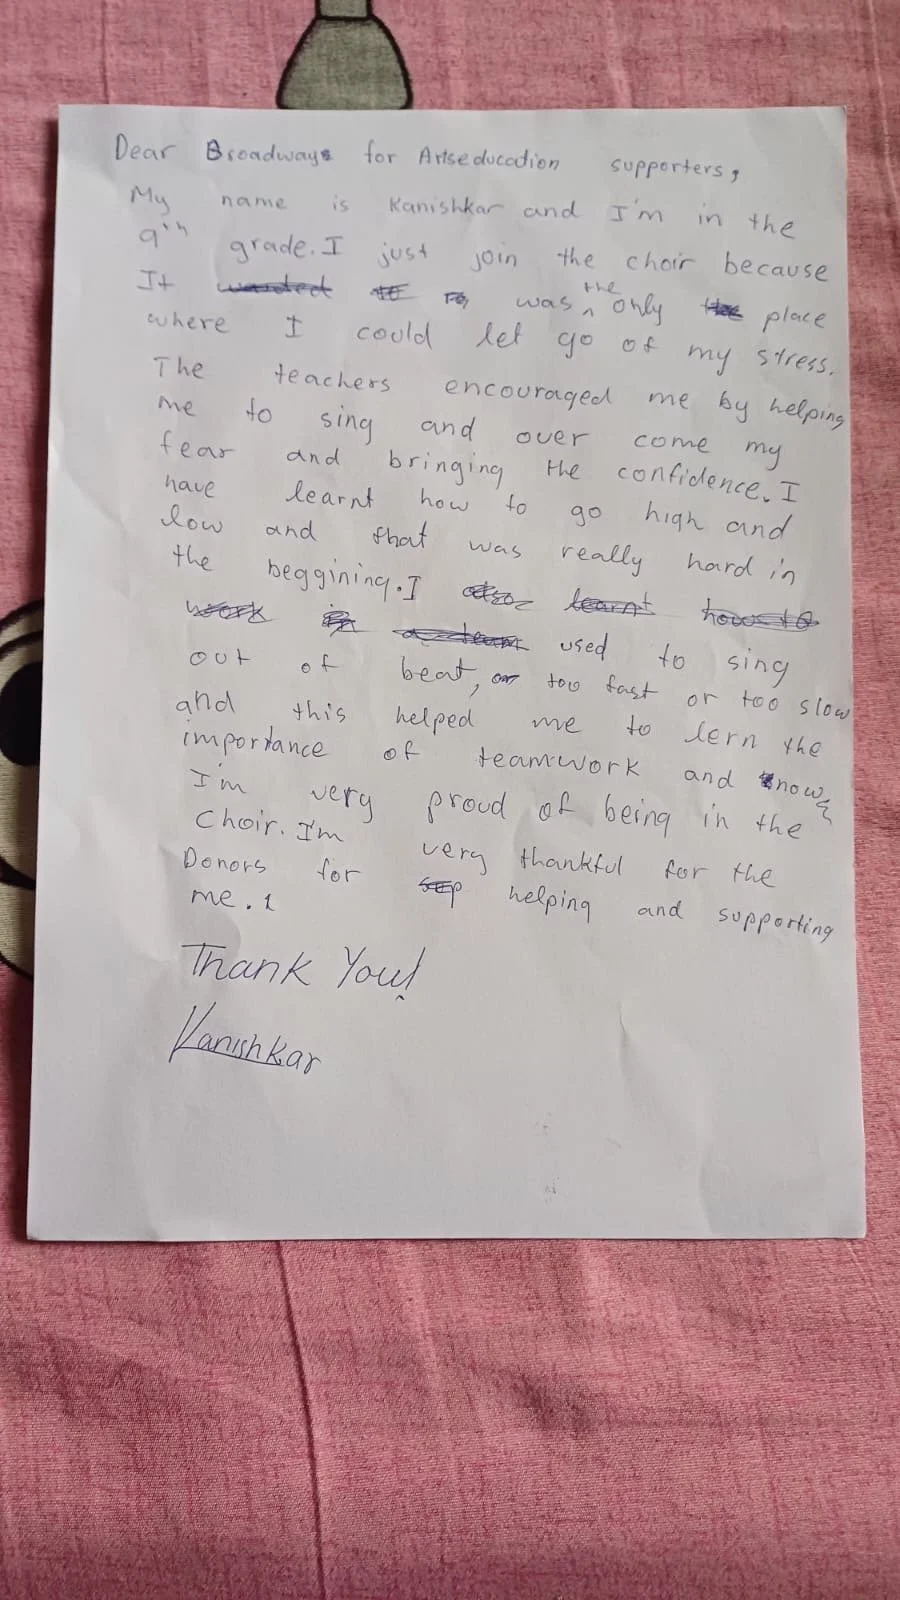 Dear Broadways for Artseducation supporters,
My name is Kanishkar and I'm in the
9th grade. I just join the choir because
It was the only place
where I could let go of my stress.
The teachers encouraged me by helping
me to sing and over come my
fear and bringing the confidence. I
have learnt how to go high and
low and that was really hard in
the beggining. I also learnt how to
work in a team used to sing
out of beat, or too fast or too slow
and this helped me to lern the
importance of teamwork and now
I'm very proud of being in the
Choir. I'm very thankful for the
Donors for helping and supporting
me.
Thank You!
Kanishkar